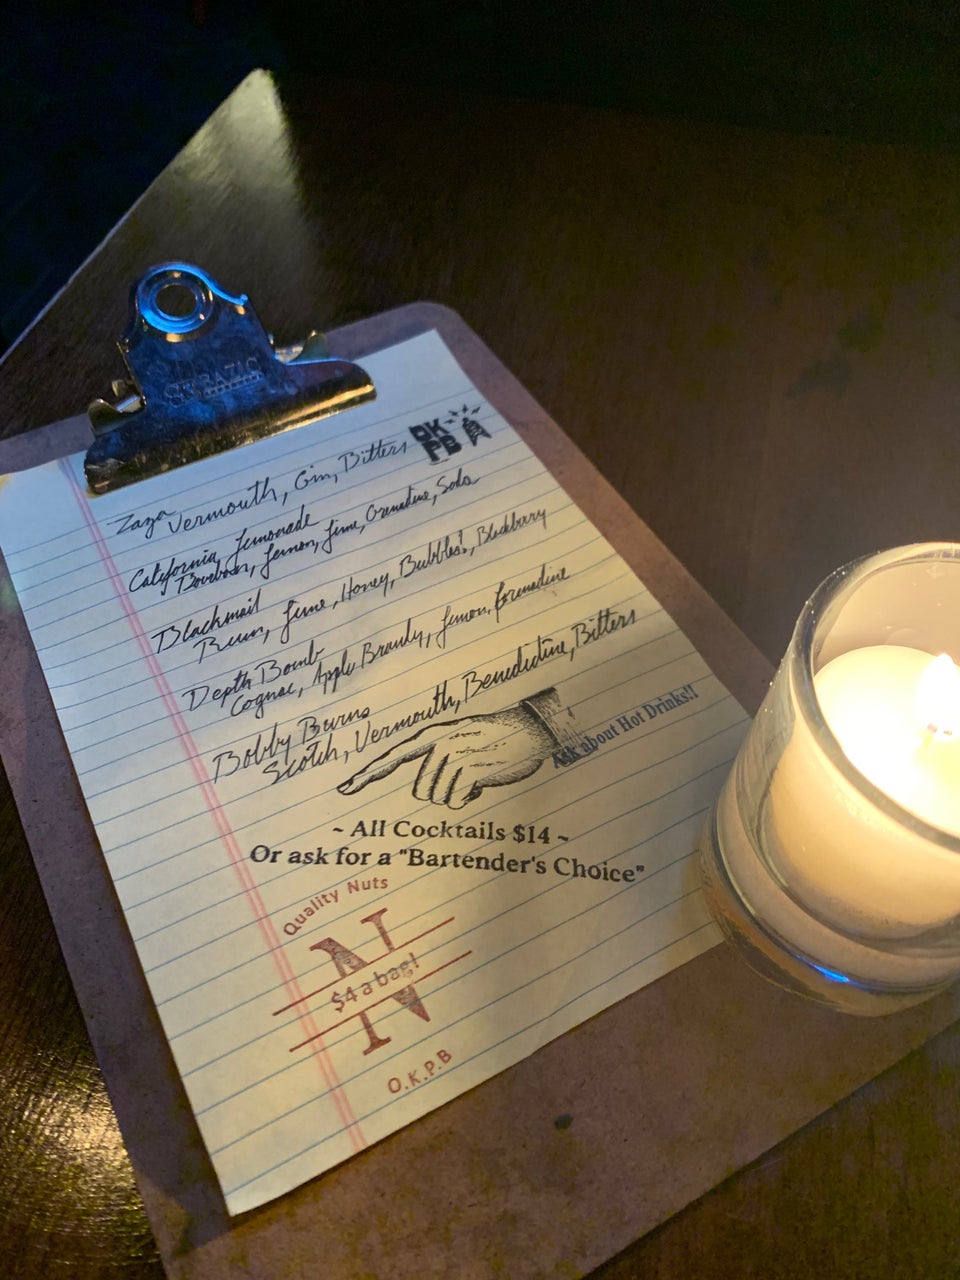 OK
PB
Zaza
Vermouth, Gin, Bitters
California Lemonade
Bourbon, Lemon, Lime, Grenadine, Soda
Blackmail
Rum, Lime, Honey, Bubbles!, Blackberry
Depth Bomb
Cognac, Apple Brandy, Lemon, Grenadine
Bobby Burns
Scotch, Vermouth, Benedictine, Bitters
Ask about Hot Drinks!!
~ All Cocktails $14 ~
Or ask for a "Bartender's Choice"
Quality Nuts
N
$4 a bag!
O.K.P.B